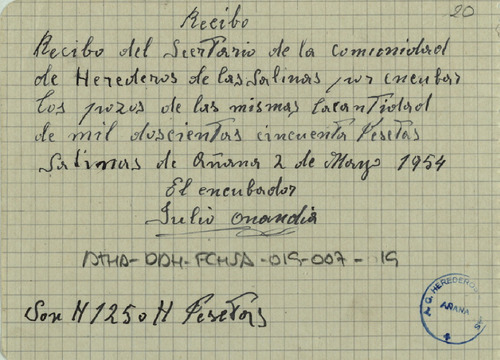 20
Recibo
Recibo del Secrtario de la comunidad
de Herederos de las Salinas por encubar
los pozos de las mismas la cantidad
de mil doscientas cincuenta Pesetas
Salinas de Añana 2 de Mayo 1954
El encubador
Julio Onandia
ATHA-DAH-FCHSA-019-007-19
Son # 1250 # Pesetas
HEREDEROS
AÑANA